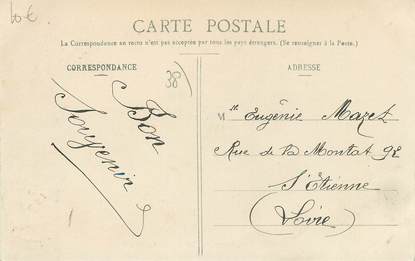 10€
CARTE POSTALE
La Correspondance au recto n'est pas acceptée par tous les pays étrangers. (Se renseigner à la Poste.)
CORRESPONDANCE
38
Bon
Souvenir
ADRESSE
Mlle Eugénie Mazet
Rue de la Montat 92
St Etienne
(Loire)